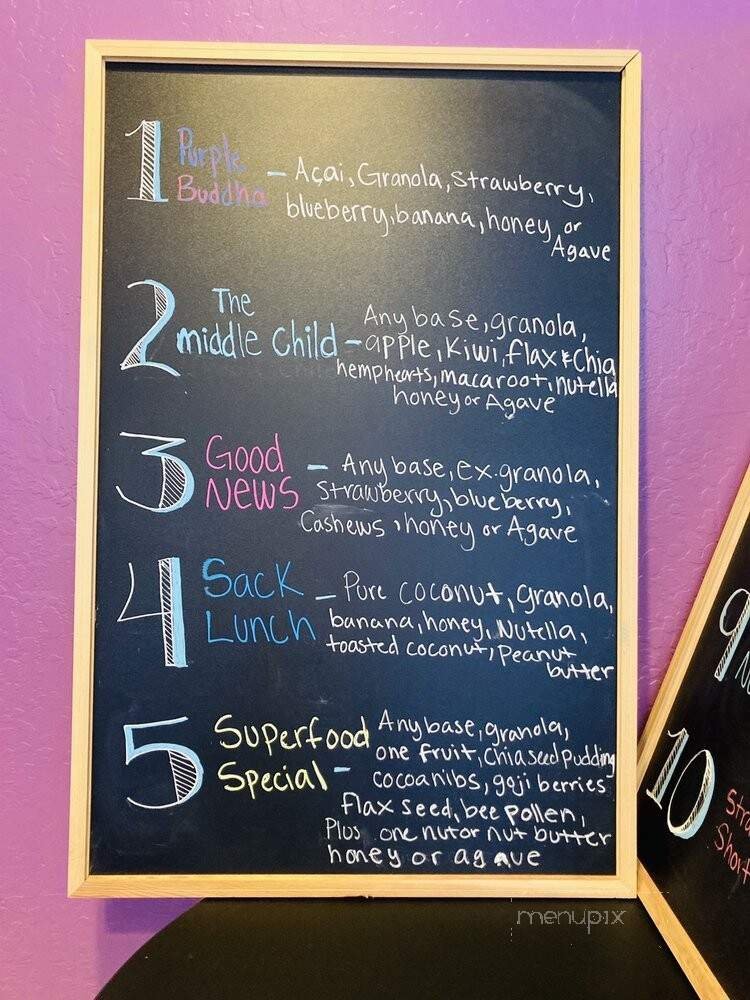 1 Purple
Buddha - Açai, Granola, Strawberry,
blueberry, banana, honey or
Agave
2 The
middle Child - Any base, granola,
apple, Kiwi, flax & Chia
hemphearts, macaroot, nutella
honey or Agave
3 Good
NEWS - Any base, ex. granola,
Strawberry, blueberry,
Cashews, honey or Agave
4 Sack
Lunch - Pure coconut, granola,
banana, honey, Nutella,
toasted coconut, Peanut
butter
5 Superfood
Special - Any base, granola,
one fruit, Chia seed pudding
cocoanibs, goji berries
flax seed, bee pollen,
Plus one nut or nut butter
honey or agave
9
10
menupix